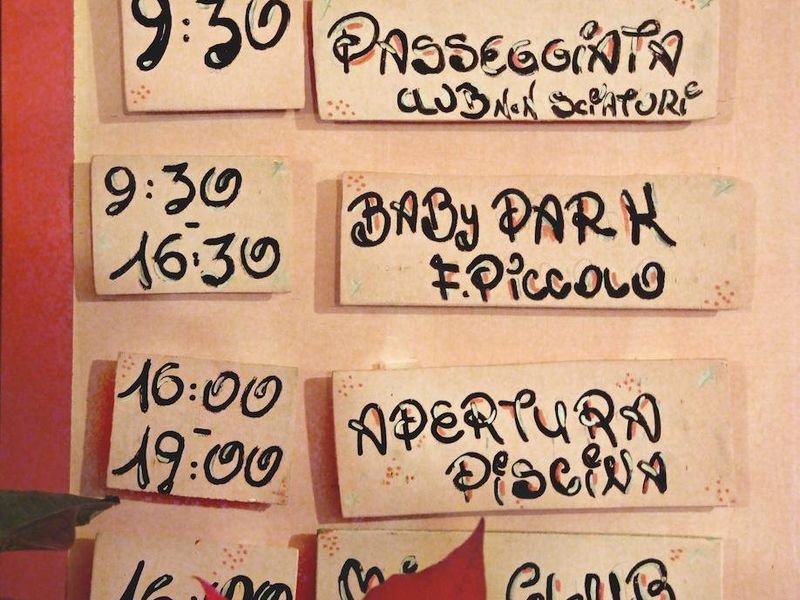 9:30 PASSEGGIATA
CLUB NON SCIATORI
9:30 - 16:30 BABY PARK
F. PICCOLO
16:00 - 19:00 APERTURA
PISCINA
16:00 MINI CLUB